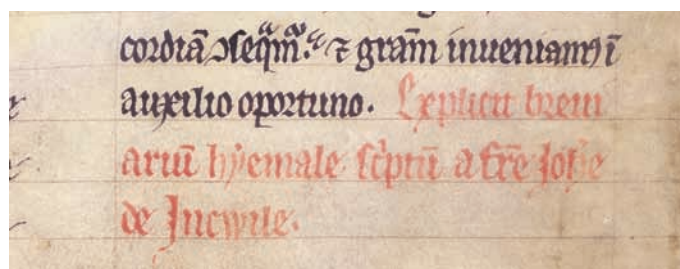 cordiā ɔseq̄m̄. ⁊ grām inueniamꝰ ī
auxilio oportuno. Explicit breui
ariū hẏemale sc͛ptū a fr̄e Joh̄e
de Incwile.